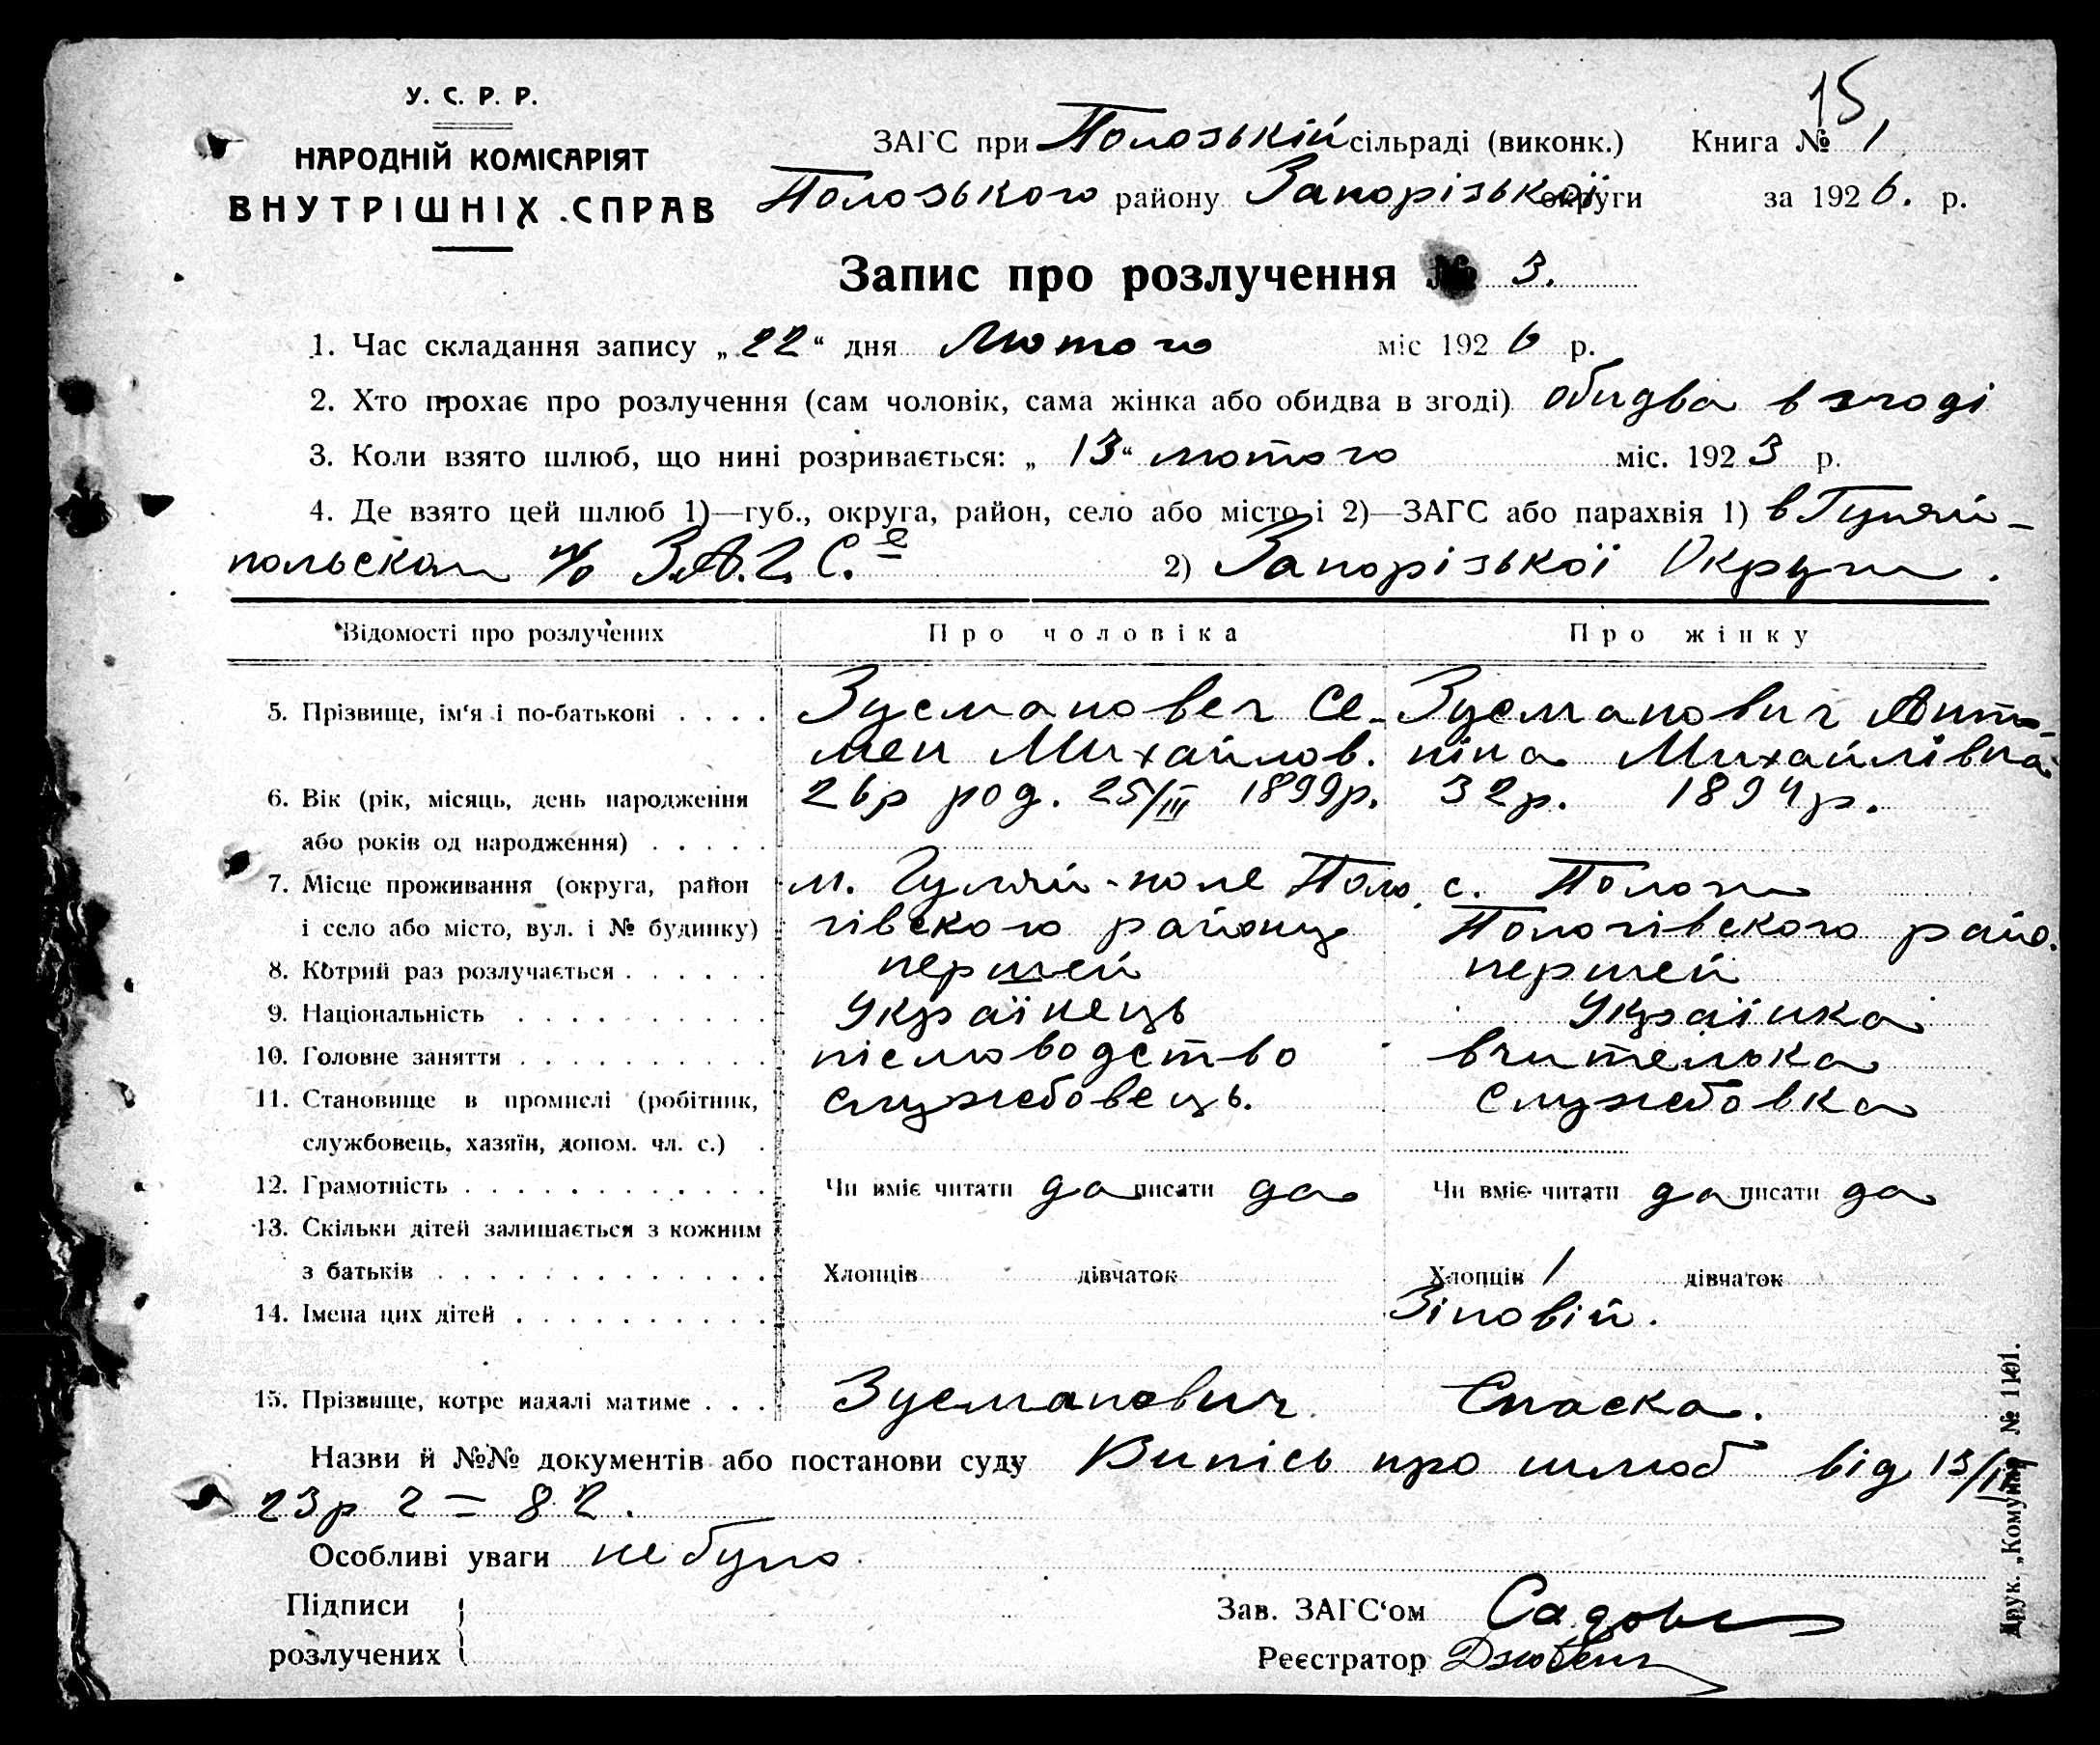 15
У. С. Р. Р.
НАРОДНІЙ КОМІСАРІЯТ
ВНУТРІШНІХ СПРАВ
ЗАГС при Полозькій сільраді (виконк.) Книга № 1
Полозького району Запорізької округи за 1926. р.
Запис про розлучення № 3.
1. Час складання запису „22“ дня Лютого міс 1926 р.
2. Хто прохає про розлучення (сам чоловік, сама жінка або обидва в згоді) обидва в згоді
3. Коли взято шлюб, що нині розривається: „13“ лютого міс. 1923 р.
4. Де взято цей шлюб 1)—губ., округа, район, село або місто і 2)—ЗАГС або парахвія 1) в Гуляй-
польском З.А.Г.С.е 2) Запорізької Округи.
Відомості про розлучених Про чоловіка Про жінку
5. Прізвище, ім‘я і по-батькові . . . . Зусманович Се- Зусманович Анто-
мен Михайлов. ніна Михайлівна
6. Вік (рік, місяць, день народження 26р род. 25/III 1899р. 32р. 1894р.
або років од народження) . . . . .
7. Місце проживання (округа, район м. Гуляй-поле Поло с. Пологи
і село або місто, вул. і № будинку) гівского району Пологівского райо.
8. Котрий раз розлучається . . . . . . першей першей
9. Національність . . . . . . . . . . Українець Українка
10. Головне заняття . . . . . . . . . . письмоводство вчителька
11. Становище в промислі (робітник, служебовець. служебовка
службовець, хазяїн, допом. чл. с.) .
12. Грамотність . . . . . . . . . . . . Чи вміє читати да писати да Чи вміє читати да писати да
13. Скільки дітей залишається з кожним
з батьків . . . . . . . . . . . . . Хлопців дівчаток Хлопців 1 дівчаток
14. Імена цих дітей . . . . . . . . . . Зіновій.
15. Прізвище, котре надалі матиме . . . Зусманович Спаска.
Назви й №№ документів або постанови суду Випісь про шлюб від 13/II
23р 2 = 82.
Особливі уваги не було
Підписи Зав. ЗАГС‘ом
розлучених Реєстратор
Друк. „Комунар“ № 1101.